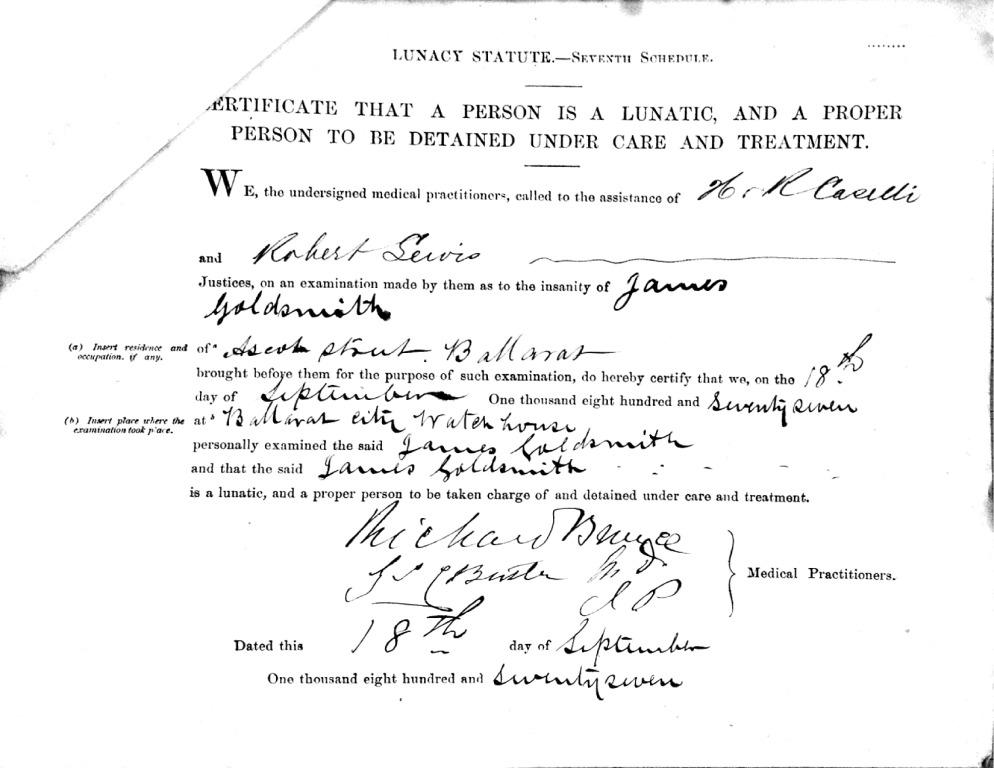 LUNACY STATUTE.—SEVENTH SCHEDULE.
ERTIFICATE THAT A PERSON IS A LUNATIC, AND A PROPER
PERSON TO BE DETAINED UNDER CARE AND TREATMENT.
WE, the undersigned medical practitioners, called to the assistance of H. R Caselli
and Robert Lewis
Justices, on an examination made by them as to the insanity of James
Goldsmith
(a) Insert residence and occupation, if any.
of a Ascot street. Ballarat
brought before them for the purpose of such examination, do hereby certify that we, on the 18th
day of September One thousand eight hundred and Seventy seven
(b) Insert place where the examination took place.
at b Ballarat city Watch house
personally examined the said James Goldsmith
and that the said James Goldsmith
is a lunatic, and a proper person to be taken charge of and detained under care and treatment.
Richard Bunce
M.D.
Medical Practitioners.
Dated this 18th day of September
One thousand eight hundred and Seventy seven